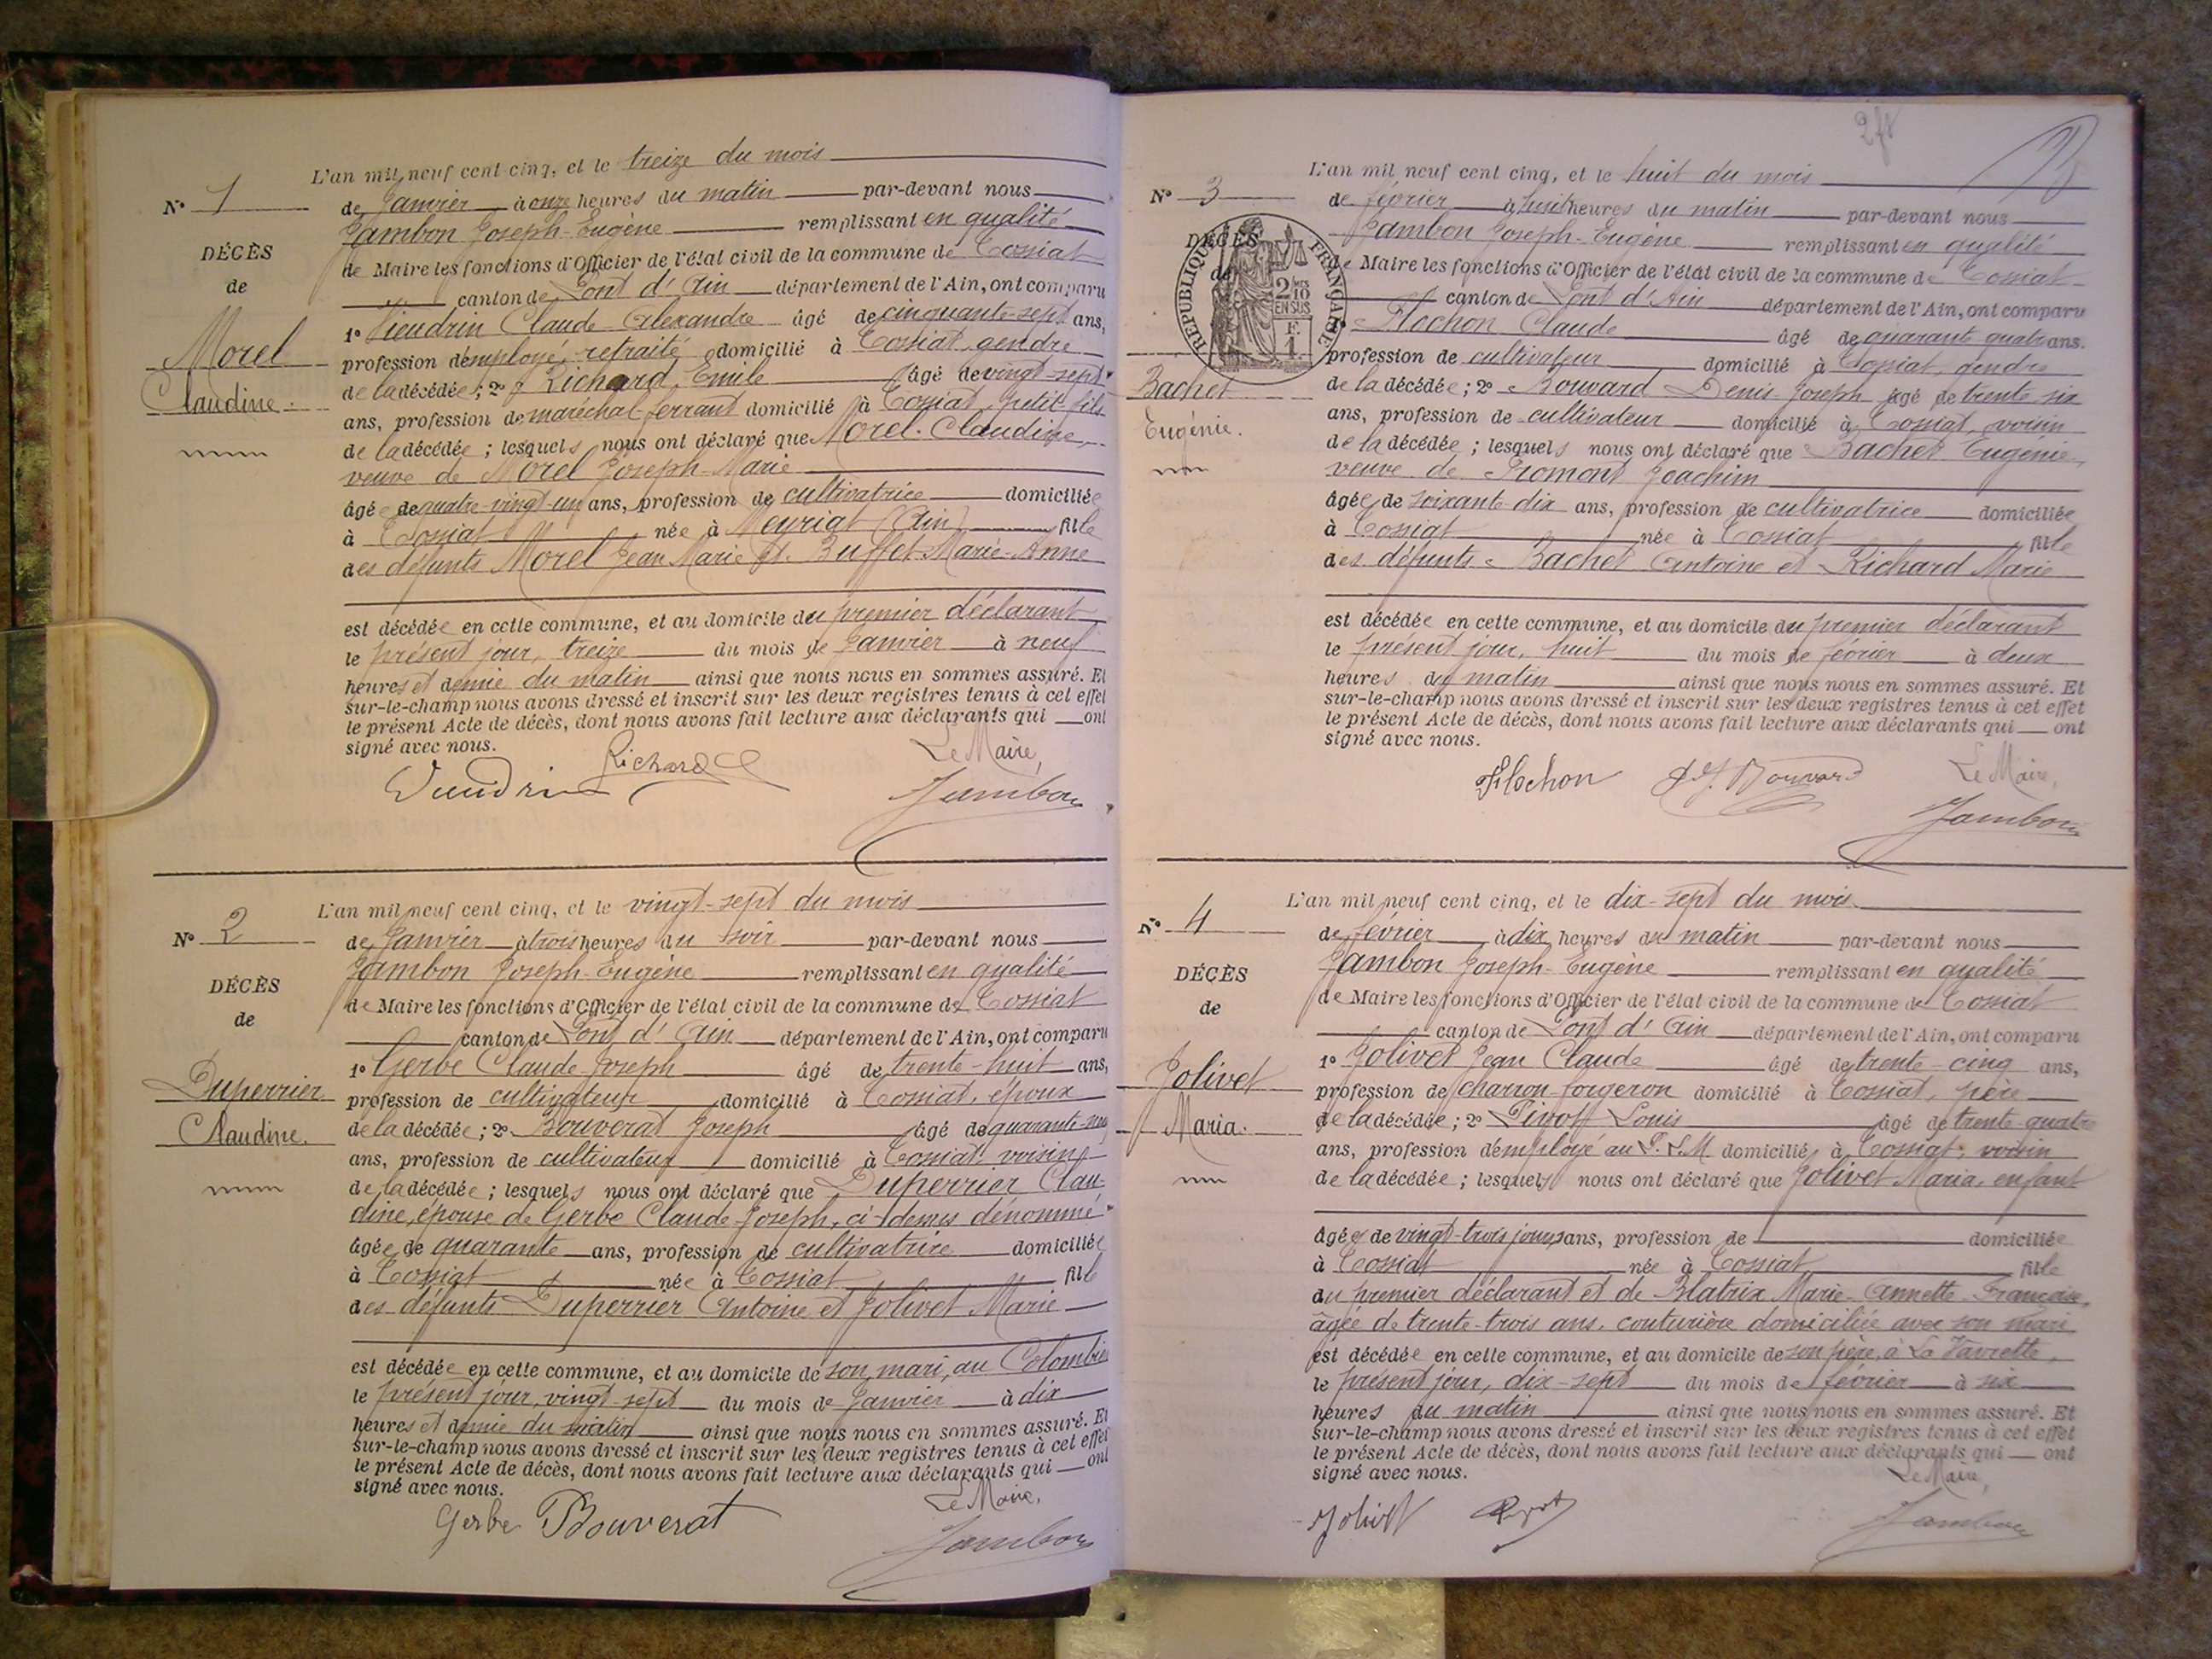 L'an mil neuf cent cinq, et le treize du mois
N° 1
de Janvier à onze heures du matin par-devant nous
Jambon Joseph-Eugène remplissant en qualité
DÉCÈS
de Maire les fonctions d'Officier de l'état civil de la commune de Tossiat
de
canton de Pont d'Ain département de l'Ain, ont comparu
1° Vieudrin Claude Alexandre âgé de cinquante-sept ans,
Morel
profession d'employé retraité domicilié à Tossiat, gendre
Claudine.
de la décédée; 2° Richard Emile âgé de vingt-sept
ans, profession de maréchal-ferrant domicilié à Tossiat, petit-fils
de la décédée; lesquels nous ont déclaré que Morel Claudine,
veuve de Morel Joseph-Marie
âgée de quatre-vingt-un ans, profession de cultivatrice domiciliée
à Tossiat née à Meyriat (Ain) fille
des défunts Morel Jean Marie et Buffet Marie-Anne
est décédée en cette commune, et au domicile du premier déclarant
le présent jour, treize du mois de Janvier à neuf
heures et demie du matin ainsi que nous nous en sommes assuré. Et
sur-le-champ nous avons dressé et inscrit sur les deux registres tenus à cet effet
le présent Acte de décès, dont nous avons fait lecture aux déclarants qui ont
signé avec nous.
Richard
Le Maire,
Jambon
L'an mil neuf cent cinq, et le vingt-sept du mois
N° 2
de Janvier à trois heures du soir par-devant nous
Jambon Joseph-Eugène remplissant en qualité
DÉCÈS
de Maire les fonctions d'Officier de l'état civil de la commune de Tossiat
de
canton de Pont d'Ain département de l'Ain, ont comparu
1° Gerbe Claude Joseph âgé de trente-huit ans,
Duperrier
profession de cultivateur domicilié à Tossiat, époux
Claudine.
de la décédée; 2° Bouverat Joseph âgé de quarante-neuf
ans, profession de cultivateur domicilié à Tossiat, voisin
de la décédée; lesquels nous ont déclaré que Duperrier Clau-
dine, épouse de Gerbe Claude-Joseph, ci-dessus dénommé
âgée de quarante ans, profession de cultivatrice domiciliée
à Tossiat née à Tossiat fille
des défunts Duperrier Antoine et Jolivet Marie
est décédée en cette commune, et au domicile de son mari, au Colombier
le présent jour, vingt-sept du mois de Janvier à dix
heures et demie du matin ainsi que nous nous en sommes assuré. Et
sur-le-champ nous avons dressé et inscrit sur les deux registres tenus à cet effet
le présent Acte de décès, dont nous avons fait lecture aux déclarants qui ont
signé avec nous.
Gerbe Bouverat
Le Maire,
Jambon
278
L'an mil neuf cent cinq, et le huit du mois
N° 3
de février à huit heures du matin par-devant nous
Jambon Joseph-Eugène remplissant en qualité
DÉCÈS
de Maire les fonctions d'Officier de l'état civil de la commune de Tossiat
de
RÉPUBLIQUE FRANÇAISE
2/10 EN SUS
F. 1
canton de Pont d'Ain département de l'Ain, ont comparu
1° Flochon Claude âgé de quarante-quatre ans.
profession de cultivateur domicilié à Tossiat, gendre
Bachet
Eugénie.
de la décédée; 2° Bouvard Denis Joseph âgé de trente-six
ans, profession de cultivateur domicilié à Tossiat, voisin
de la décédée; lesquels nous ont déclaré que Bachet Eugénie,
veuve de Fromont Joachim
âgée de soixante-dix ans, profession de cultivatrice domiciliée
à Tossiat née à Tossiat fille
des défunts Bachet Antoine et Richard Marie
est décédée en cette commune, et au domicile du premier déclarant
le présent jour, huit du mois de février à deux
heures du matin ainsi que nous nous en sommes assuré. Et
sur-le-champ nous avons dressé et inscrit sur les deux registres tenus à cet effet
le présent Acte de décès, dont nous avons fait lecture aux déclarants qui ont
signé avec nous.
Flochon D. J. Bouvard
Le Maire,
Jambon
L'an mil neuf cent cinq, et le dix-sept du mois
N° 4
de février à dix heures du matin par-devant nous
Jambon Joseph-Eugène remplissant en qualité
DÉCÈS
de Maire les fonctions d'Officier de l'état civil de la commune de Tossiat
de
canton de Pont d'Ain département de l'Ain, ont comparu
1° Jolivet Jean Claude âgé de trente-cinq ans,
Jolivet
profession de charron-forgeron domicilié à Tossiat, père
Maria.
de la décédée; 2° Louis âgé de trente-quatre
ans, profession d'employé au P.L.M domicilié à Tossiat, voisin
de la décédée; lesquels nous ont déclaré que Jolivet Maria, enfant
âgée de vingt-trois jours ans, profession de domiciliée
à Tossiat née à Tossiat fille
du premier déclarant et de Blatrix Marie-Annette-Françoise,
âgée de trente-trois ans, couturière domiciliée avec son mari
est décédée en cette commune, et au domicile de son père, à La Vavrette,
le présent jour, dix-sept du mois de février à six
heures du matin ainsi que nous nous en sommes assuré. Et
sur-le-champ nous avons dressé et inscrit sur les deux registres tenus à cet effet
le présent Acte de décès, dont nous avons fait lecture aux déclarants qui ont
signé avec nous.
Le Maire,
Jolivet
Jambon